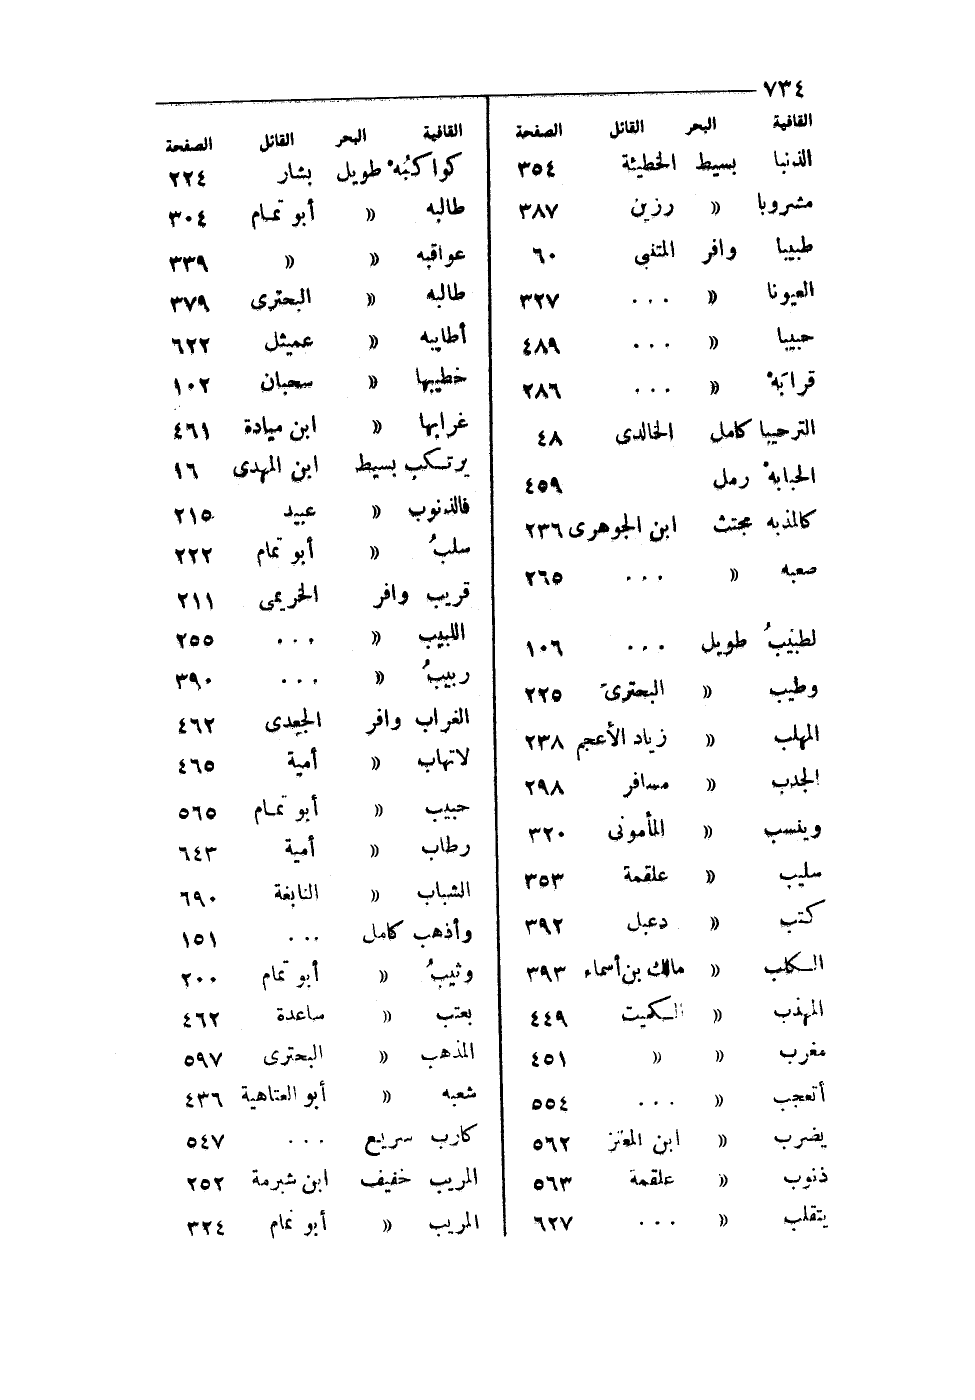 ٧٣٤
القافية البحر القائل الصفحة
الذنبا بسيط الحطيئة ٣٥٤
مشروبا » رزين ٣٨٧
طبيبا وافر المتنبى ٦٠
العيونا » ... ٣٢٧
حبيبا » ... ٤٨٩
قرابَهْ » ... ٢٨٦
الترحيبا كامل الخالدى ٤٨
الحبابهْ رمل ٤٥٩
كالمذبه مجتث ابن الجوهرى ٢٣٦
صعبه » ... ٢٦٥
لطبيبُ طويل ... ١٠٦
وطيب » البحترى ٢٢٥
المهلب » زياد الأعجم ٢٣٨
الجدب » مسافر ٢٩٨
وينسب » المأمونى ٣٢٠
سليب » علقمة ٣٥٣
كتب » دعبل ٣٩٢
الكلب » مالك بن أسماء ٣٩٣
المهذب » الكميت ٤٤٩
مغرب » » ٤٥١
أتعجب » ... ٥٥٤
يضرب » ابن المعتز ٥٦٢
ذنوب » علقمة ٥٦٣
يتقلب » ... ٦٢٧
القافية البحر القائل الصفحة
كواكبُهْ طويل بشار ٢٢٤
طالبه » أبو تمام ٣٠٤
عواقبه » » ٣٣٩
طالبه » البحترى ٣٧٩
أطايبه » عميثل ٦٢٢
خطيبها » سحبان ١٠٢
غرابها » ابن ميادة ٤٦١
يرتكب بسيط ابن المهدى ١٦
فالذنوب » عبيد ٢١٥
سلبُ » أبو تمام ٢٢٢
قريب وافر الخريمى ٢١١
اللبيب » ... ٢٥٥
ربيبُ » ... ٣٩٠
الغراب وافر الجعدى ٤٦٢
لاتهاب » أمية ٤٦٥
حبيب » أبو تمام ٥٦٥
رطاب » أمية ٦٤٣
الشباب » النابغة ٦٩٠
وأذهب كامل ... ١٥١
وثيبُ » أبو تمام ٢٠٠
يعتب » ساعدة ٤٦٢
المذهب » البحترى ٥٩٧
شعبه » أبو العتاهية ٤٣٦
كارب سريع ... ٥٤٧
المريب خفيف ابن شبرمة ٢٥٢
المريب » أبو تمام ٣٢٤